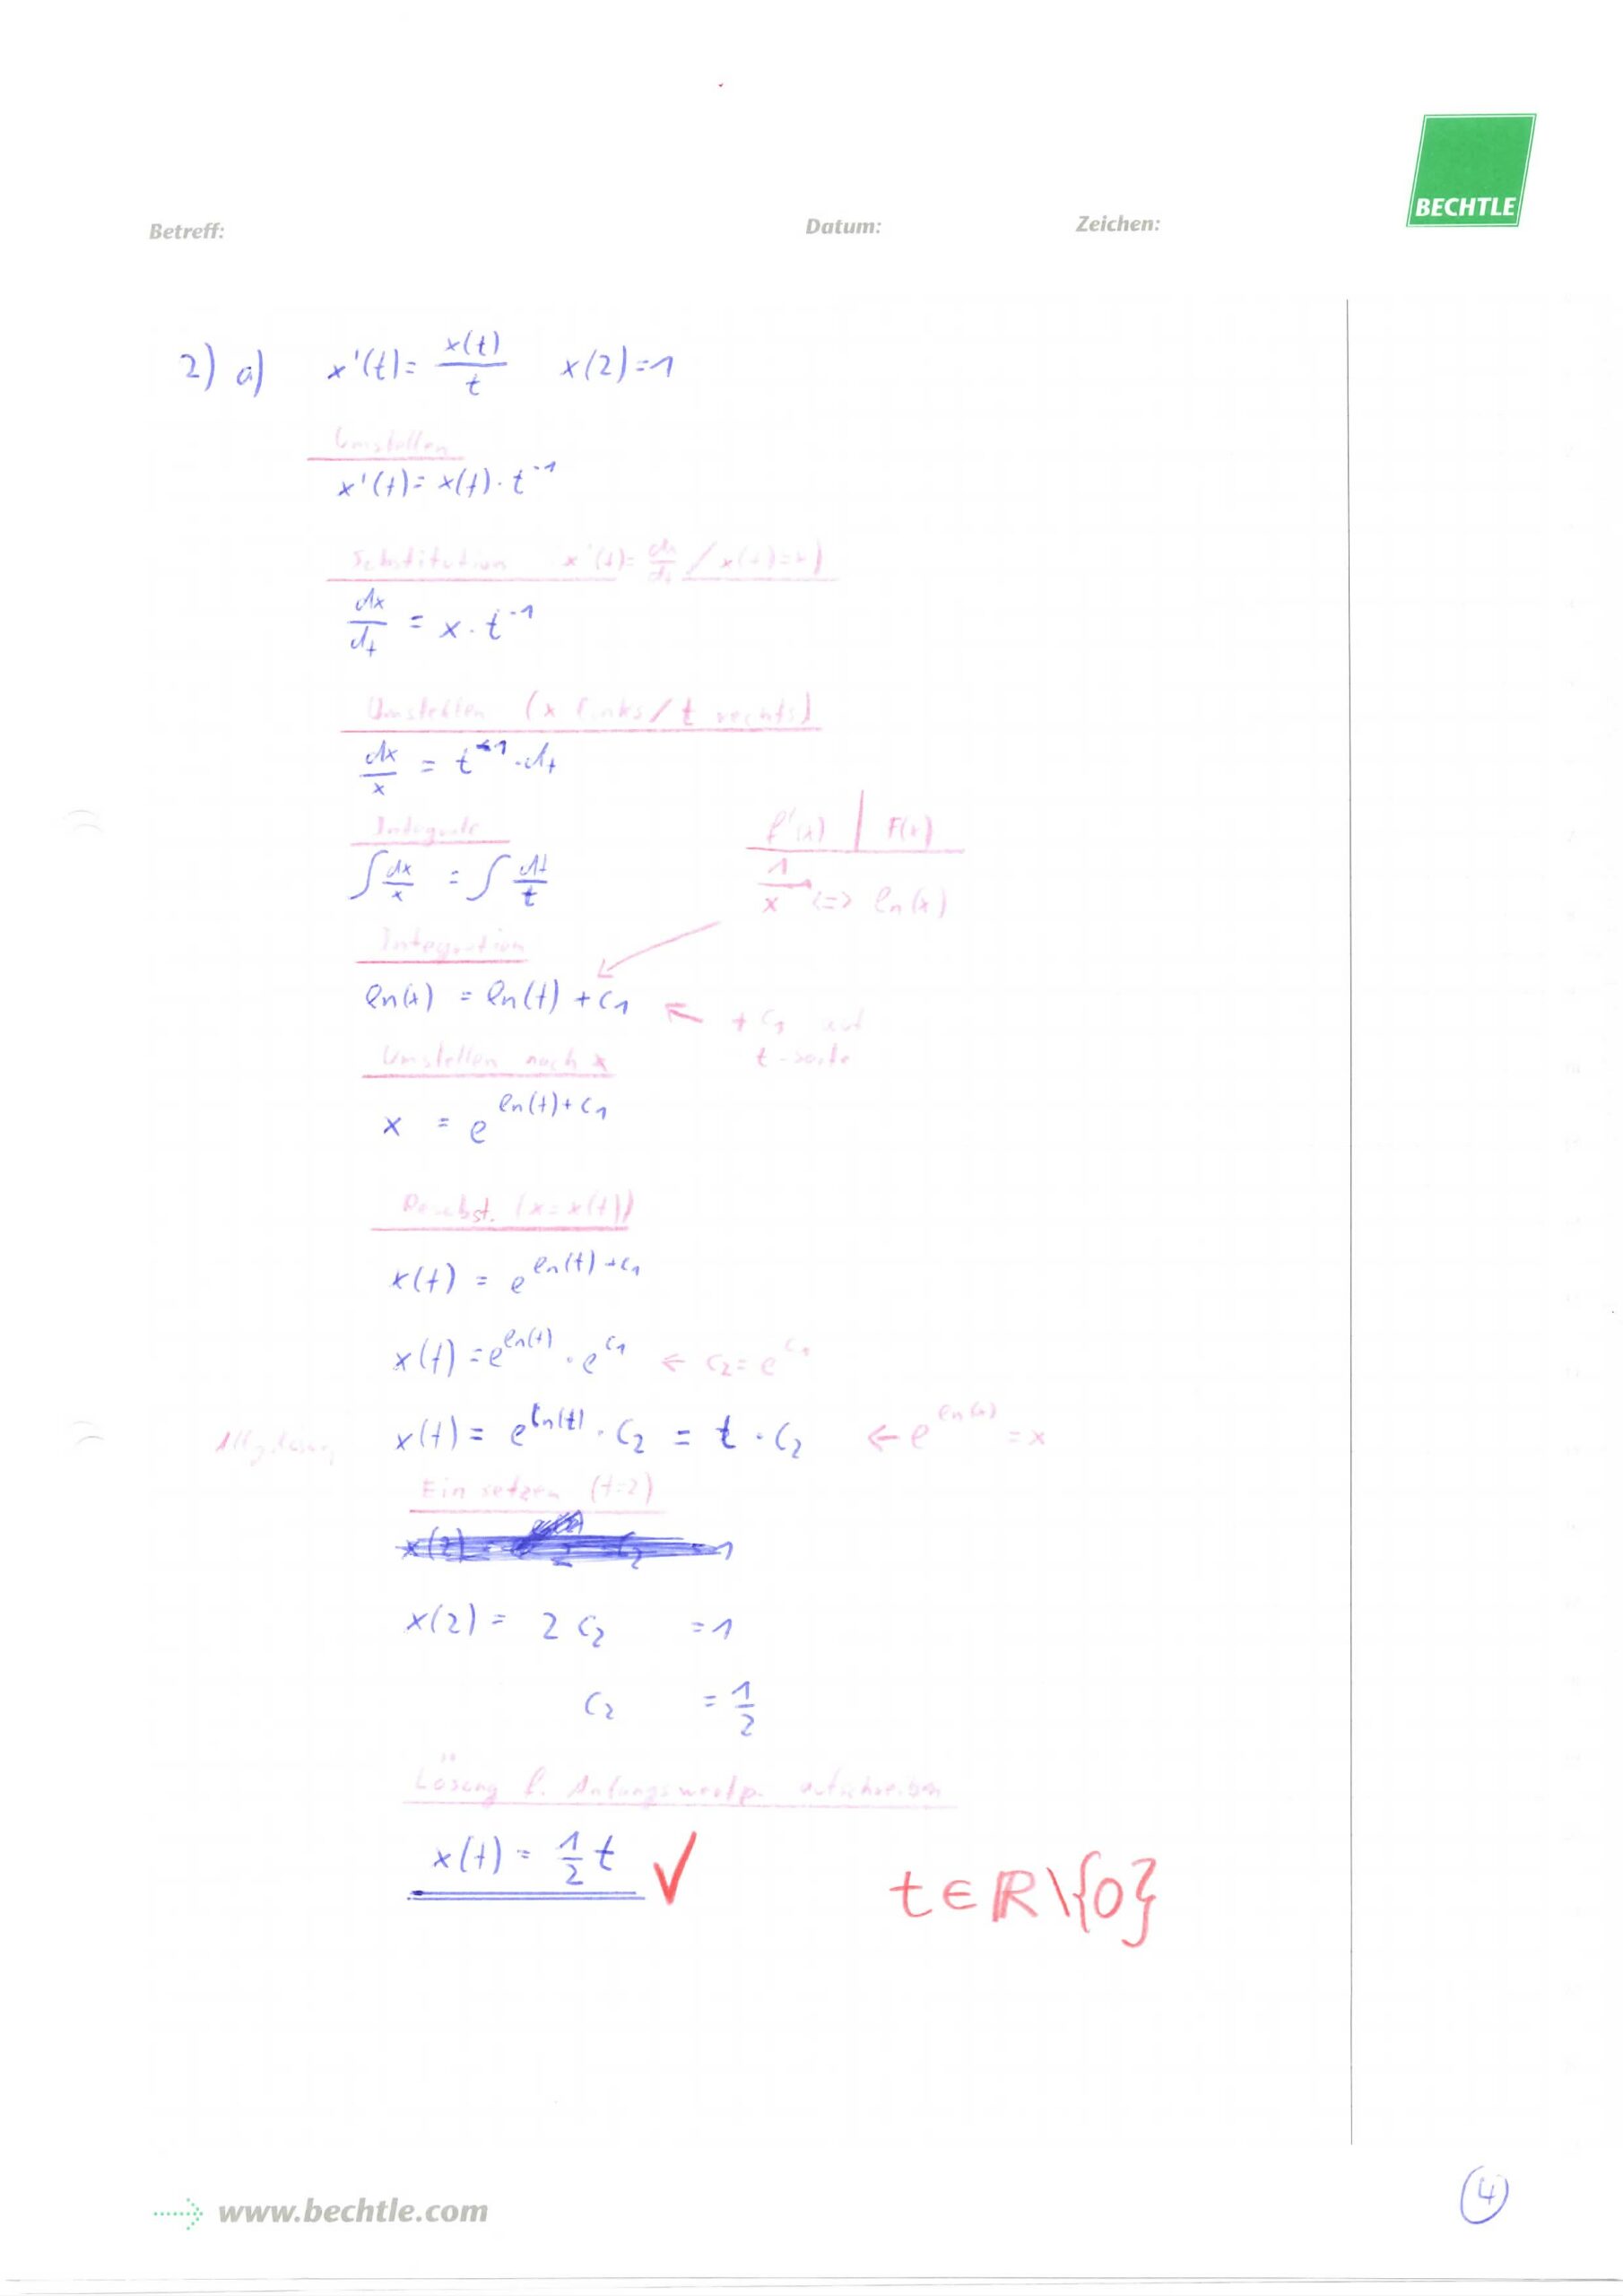 BECHTLE
Betreff: Datum: Zeichen:
2) a) x'(t) = x(t)/t x(2)=1
Umstellen
x'(t) = x(t) · t⁻¹
Substitution x'(t) = dx/dt / x(t)=x)
dx/dt = x · t⁻¹
Umstellen (x links / t rechts)
dx/x = t⁻¹ · dt
Integrale
f'(x) | F(x)
∫ dx/x = ∫ dt/t
1/x <=> ln(x)
Integration
ln(x) = ln(t) + c₁ ← + c₁ auf
t-seite
Umstellen nach x
x = e^(ln(t)+c₁)
Resubst. (x=x(t))
x(t) = e^(ln(t)+c₁)
x(t) = e^(ln(t)) · e^(c₁) ← c₂ = e^(c₁)
x(t) = e^(ln(t)) · c₂ = t · c₂ ← e^(ln(x)) = x
Einsetzen (t=2)
x(2) = 2 c₂ = 1
c₂ = 1/2
Lösung f. Anfangswertp. aufschreiben
x(t) = 1/2 t ✓ t ∈ ℝ \ {0}
www.bechtle.com
4